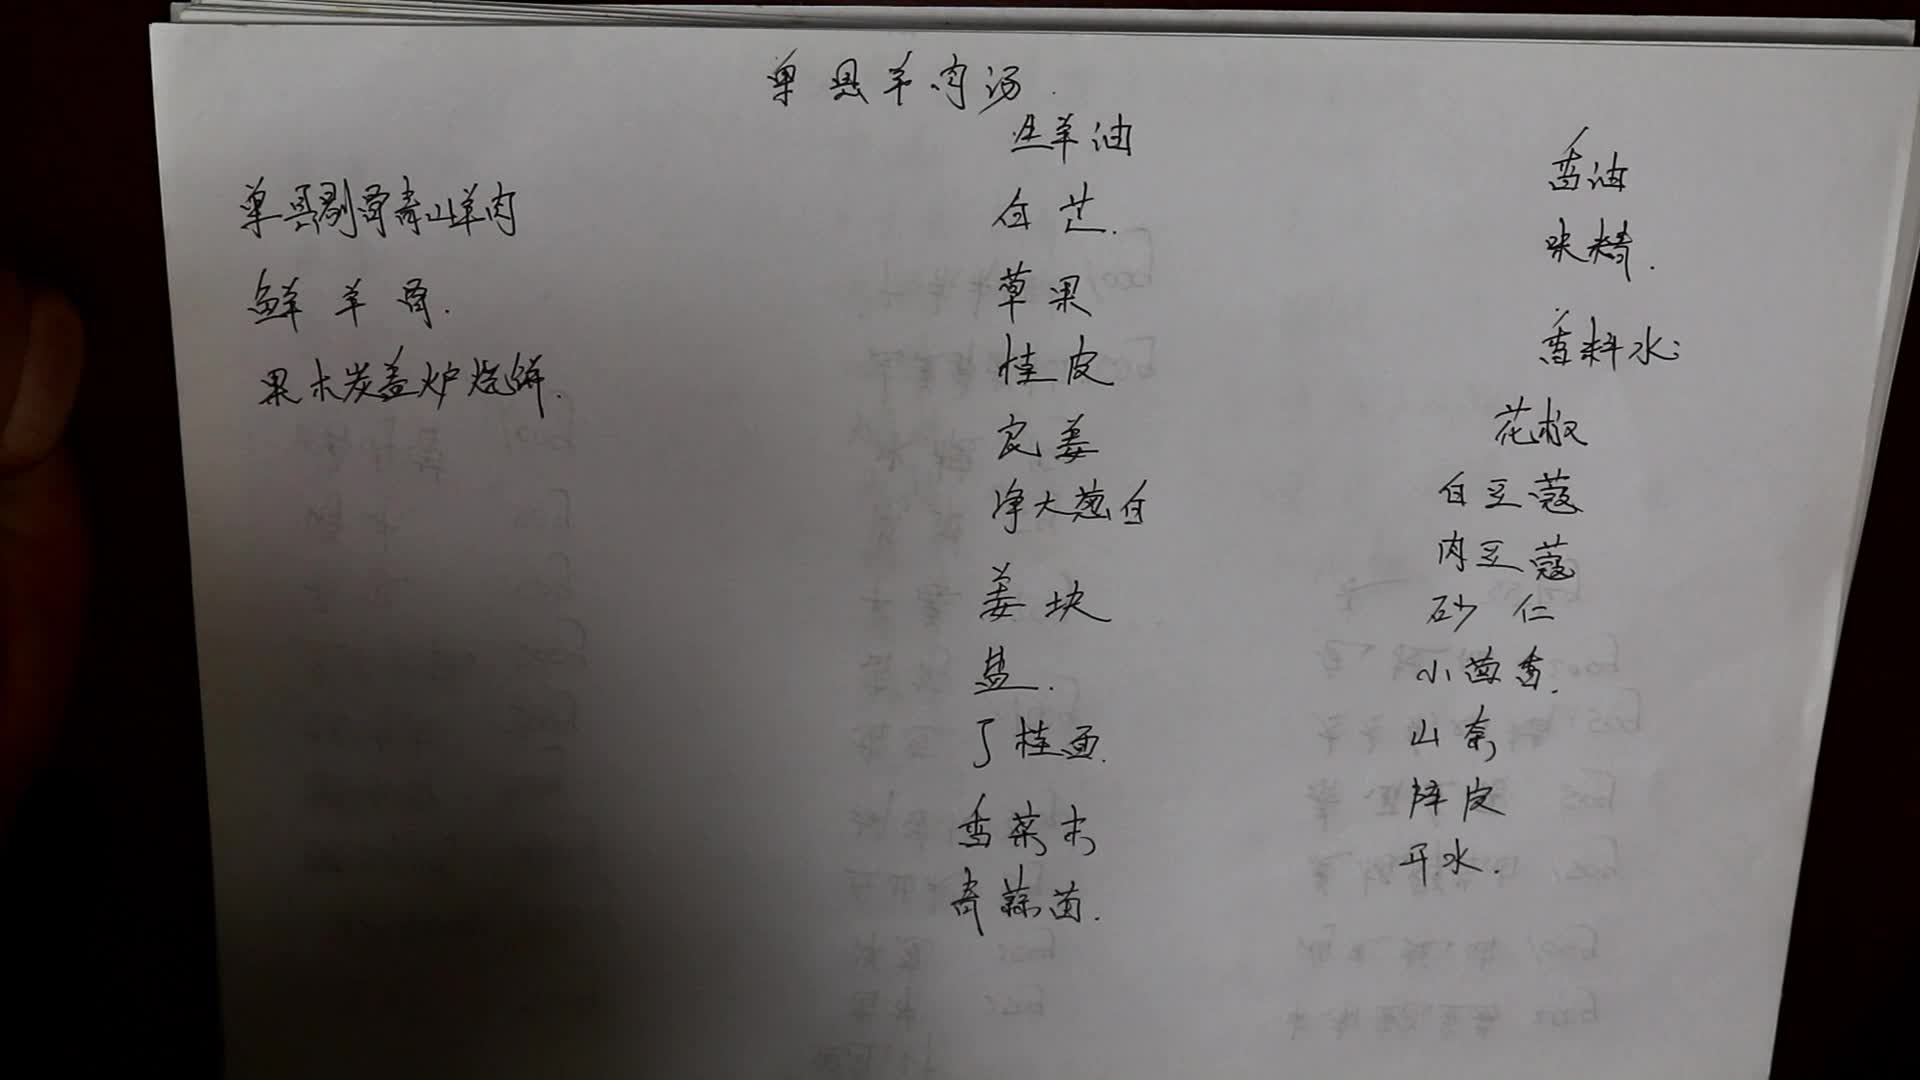 单县羊肉汤
单县剔骨青山羊肉
鲜羊骨.
果木炭盖炉烧饼.
生羊油
白芷.
草果
桂皮
良姜
净大葱白
姜块
盐.
丁桂面.
香菜末
青蒜苗.
香油
味精.
香料水:
花椒
白豆蔻
肉豆蔻
砂仁
小茴香.
山柰
陈皮
开水.